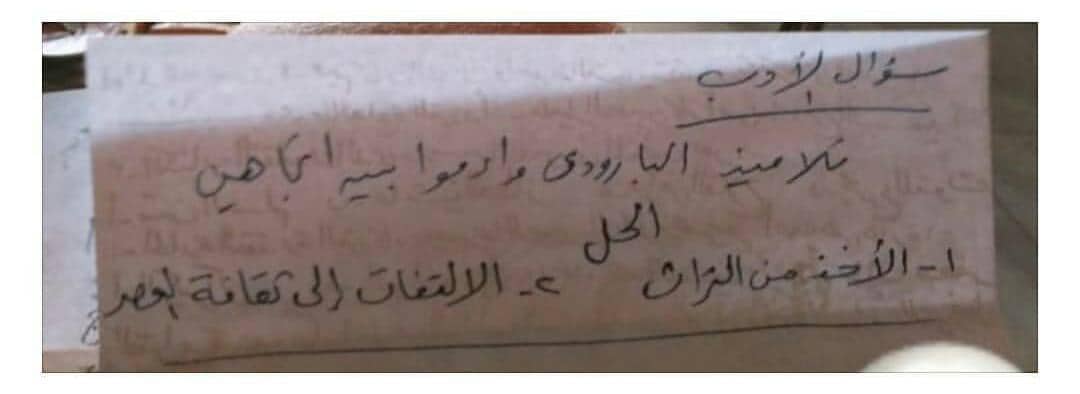 سؤال الأدب
تلاميذ البارودى وازموا بين اتجاهين
الحل
١- الأخذ من التراث ٢- الالتفات إلى ثقافة العصر